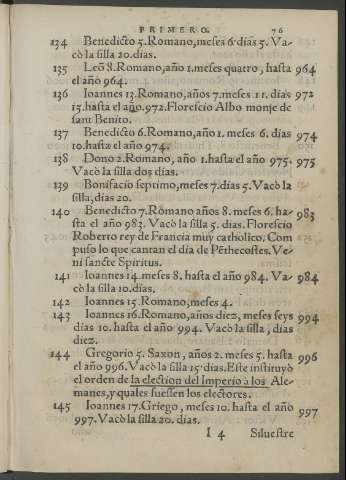 PRIMERO. 76
134 Benedicto 5. Romano, meses 6 dias 5. Va-
cò la silla 20. dias.
135 Leõ 8. Romano, año 1. meses quatro, hasta 964
el año 964.
136 Ioannes 13. Romano, años 7. meses 11. dias 972
15. hasta el año. 972. Florescio Albo monje de
sant Benito.
137 Benedicto 6. Romano, año 1. meses 6. dias 974
10. hasta el año 974.
138 Dono 2. Romano, año 1. hasta el año 975. 975
Vacò la silla dos dias.
139 Bonifacio septimo, meses 7. dias 5. Vacò la
silla, dias 20.
140 Benedicto 7. Romano años 8. meses 6. ha- 983
sta el año 983. Vacò la silla 5. dias. Florescio
Roberto rey de Francia muy catholico. Com
puso lo que cantan el dia de Pẽthecostes. Ve-
ni sancte Spiritus.
141 Ioannes 14. meses 8. hasta el año 984. Va- 984
cò la silla 10. dias.
142 Ioannes 15. Romano, meses 4.
143 Ioannes 16. Romano, años diez, meses seys 994
dias 10. hasta el año 994. Vacò la silla, dias
diez.
144 Gregorio 5. Saxon, años 2. meses 5. hasta 996
el año 996. Vacò la silla 15. dias. Este instituyò
el orden de la election del Imperio à los Ale-
manes, y quales fuessen los electores.
145 Ioannes 17. Griego, meses 10. hasta el año 997
997. Vacò la silla 20. dias.
I 4 Siluestre